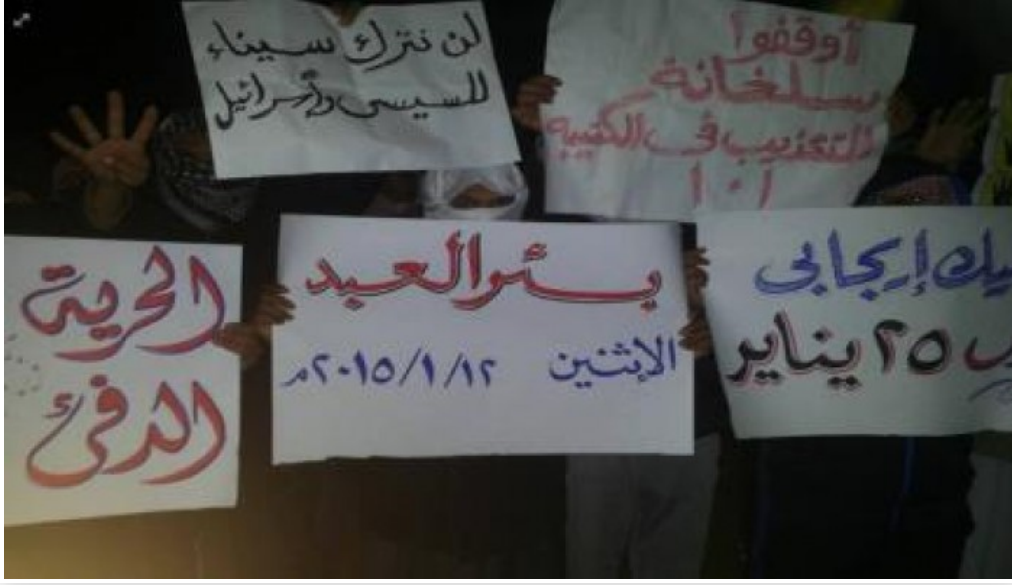 لن نترك سيناء
للسيسى وإسرائيل
أوقفوا
سلخانة
التعذيب فى الكتيبه
١٠١
الحرية
الدفئ
بئر العبد
الإثنين ٢٠١٥/١/١٢م
إيجابى
٢٥ يناير